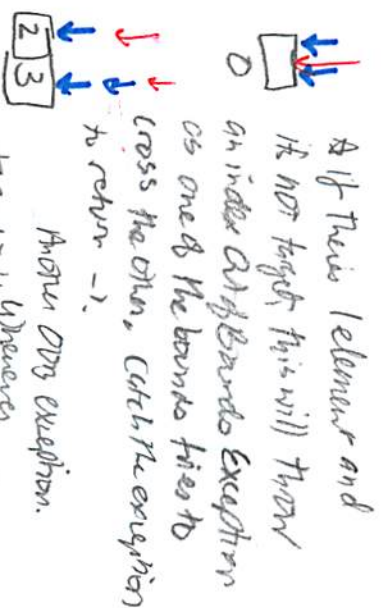 0
* If theris 1 element and
it's not target, this will throw
an index Out of Bounds Exception
as one of the bounds tries to
cross the other. Catch the exception
to return -1.
2 3
Another OOB exception.
Whenever